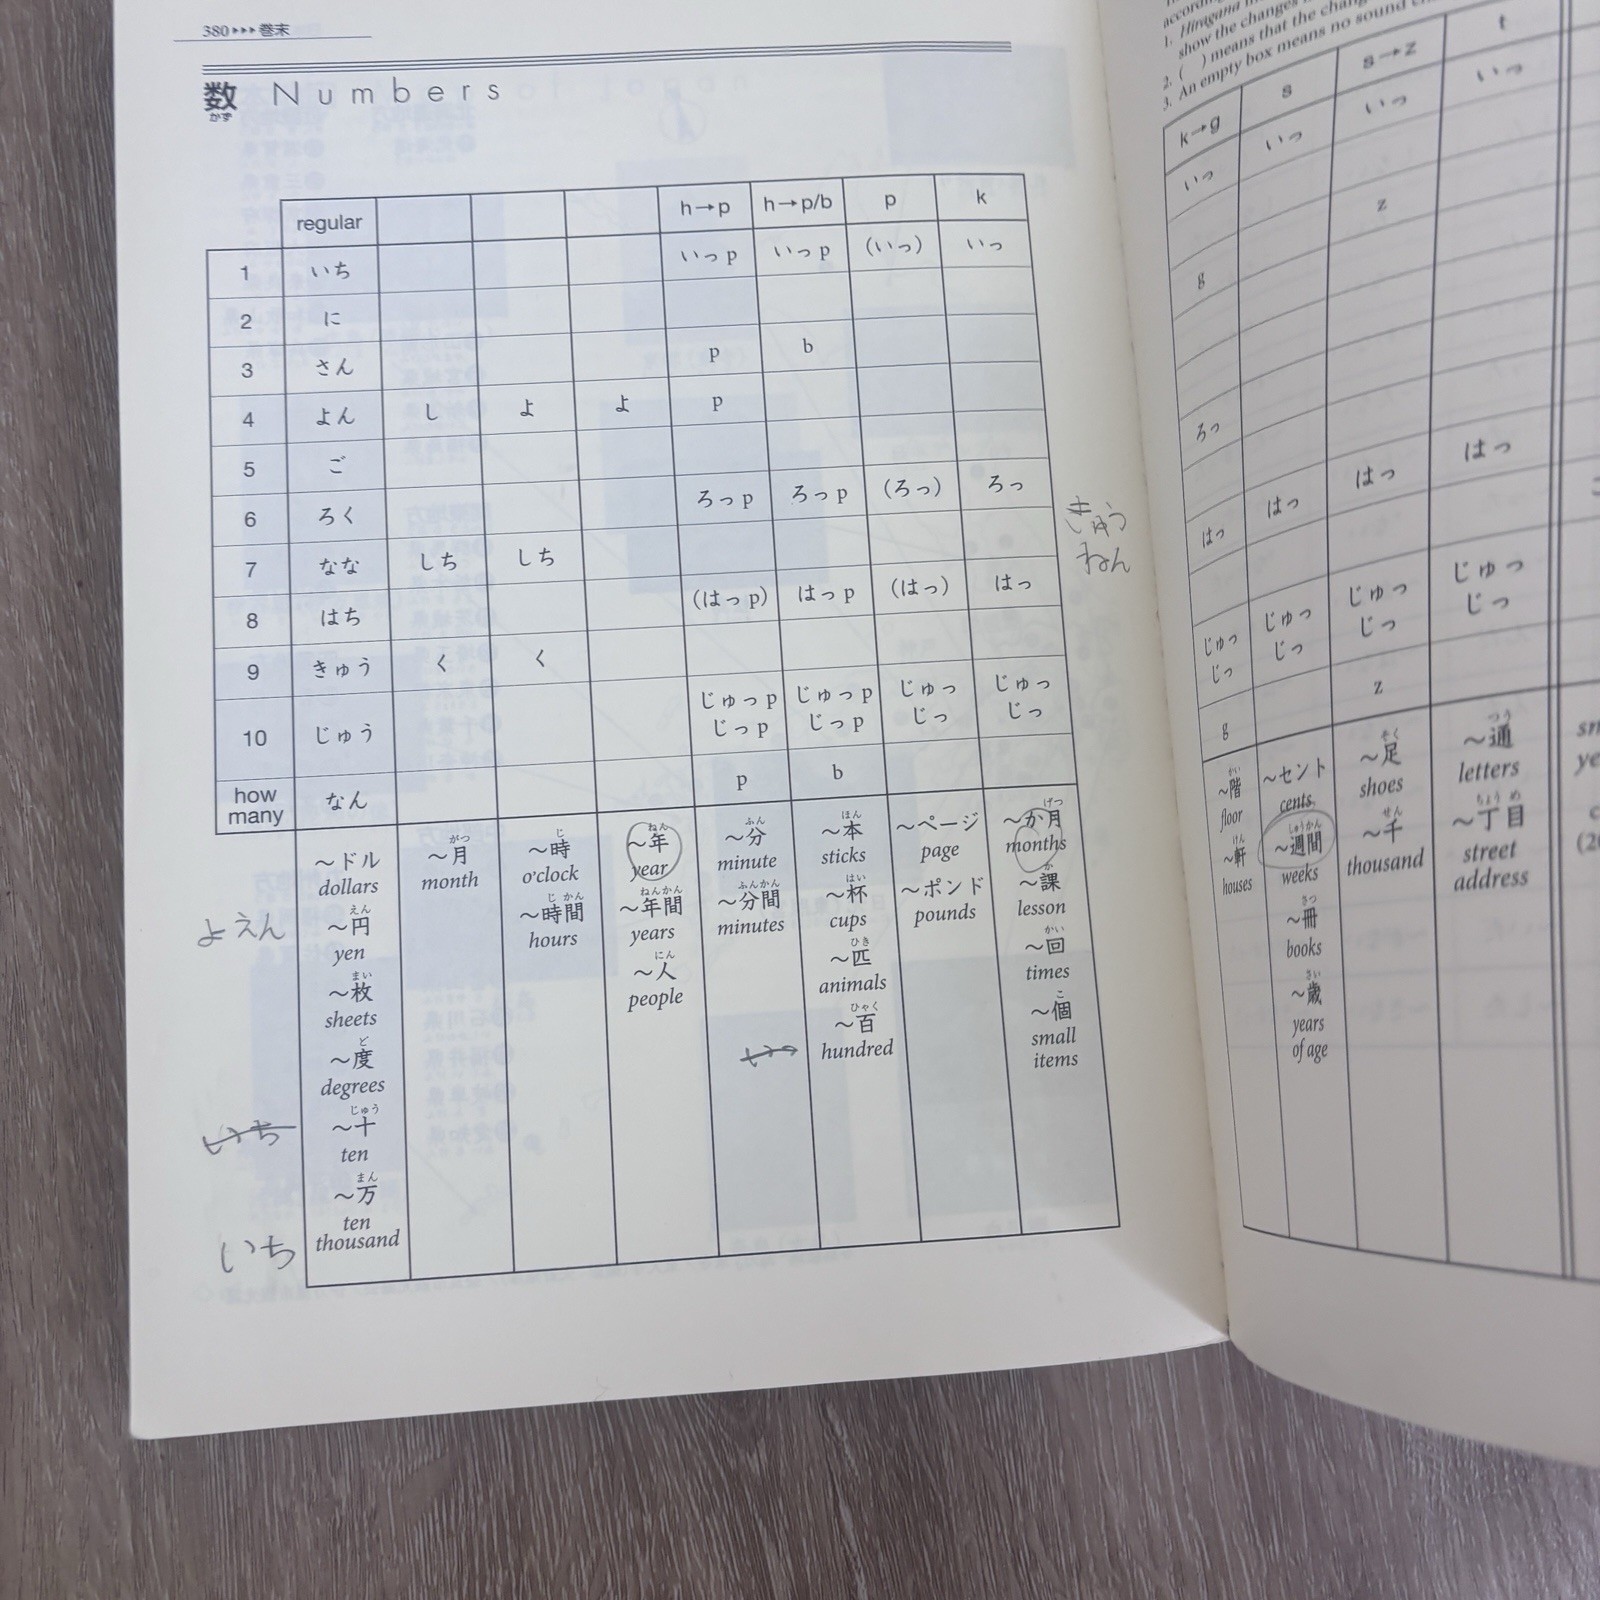 380▸▸▸巻末
数 Numbers
かず
regular h→p h→p/b p k
1 いち いっp いっp (いっ) いっ
2 に
3 さん p b
4 よん し よ よ p
5 ご
6 ろく ろっp ろっp (ろっ) ろっ
7 なな しち しち
8 はち (はっp) はっp (はっ) はっ
9 きゅう く く
10 じゅう じゅっp じゅっp じゅっ じゅっ
じっp じっp じっ じっ
how many なん p b
~ドル
dollars
えん
~円
yen
まい
~枚
sheets
ど
~度
degrees
じゅう
~十
ten
まん
~万
ten
thousand
がつ
~月
month
じ
~時
o'clock
じかん
~時間
hours
ねん
~年
year
ねんかん
~年間
years
にん
~人
people
ふん
~分
minute
ふんかん
~分間
minutes
ほん
~本
sticks
はい
~杯
cups
ひき
~匹
animals
ひゃく
~百
hundred
~ページ
page
~ポンド
pounds
げつ
~か月
months
か
~課
lesson
かい
~回
times
こ
~個
small
items
よえん
いち
いち
きゅう
ねん
1. Hiragana
show the changes
2. ( ) means that the
3. An empty box means no sound
k→g s s→z t
いっ いっ いっ いっ
z
g
ろっ
はっ はっ はっ はっ
じゅっ じゅっ じゅっ じゅっ
じっ じっ じっ じっ
g z
かい
~階
floor
けん
~軒
houses
~セント
cents
しゅうかん
~週間
weeks
さつ
~冊
books
さい
~歳
years
of age
そく
~足
shoes
せん
~千
thousand
つう
~通
letters
ちょうめ
~丁目
street
address